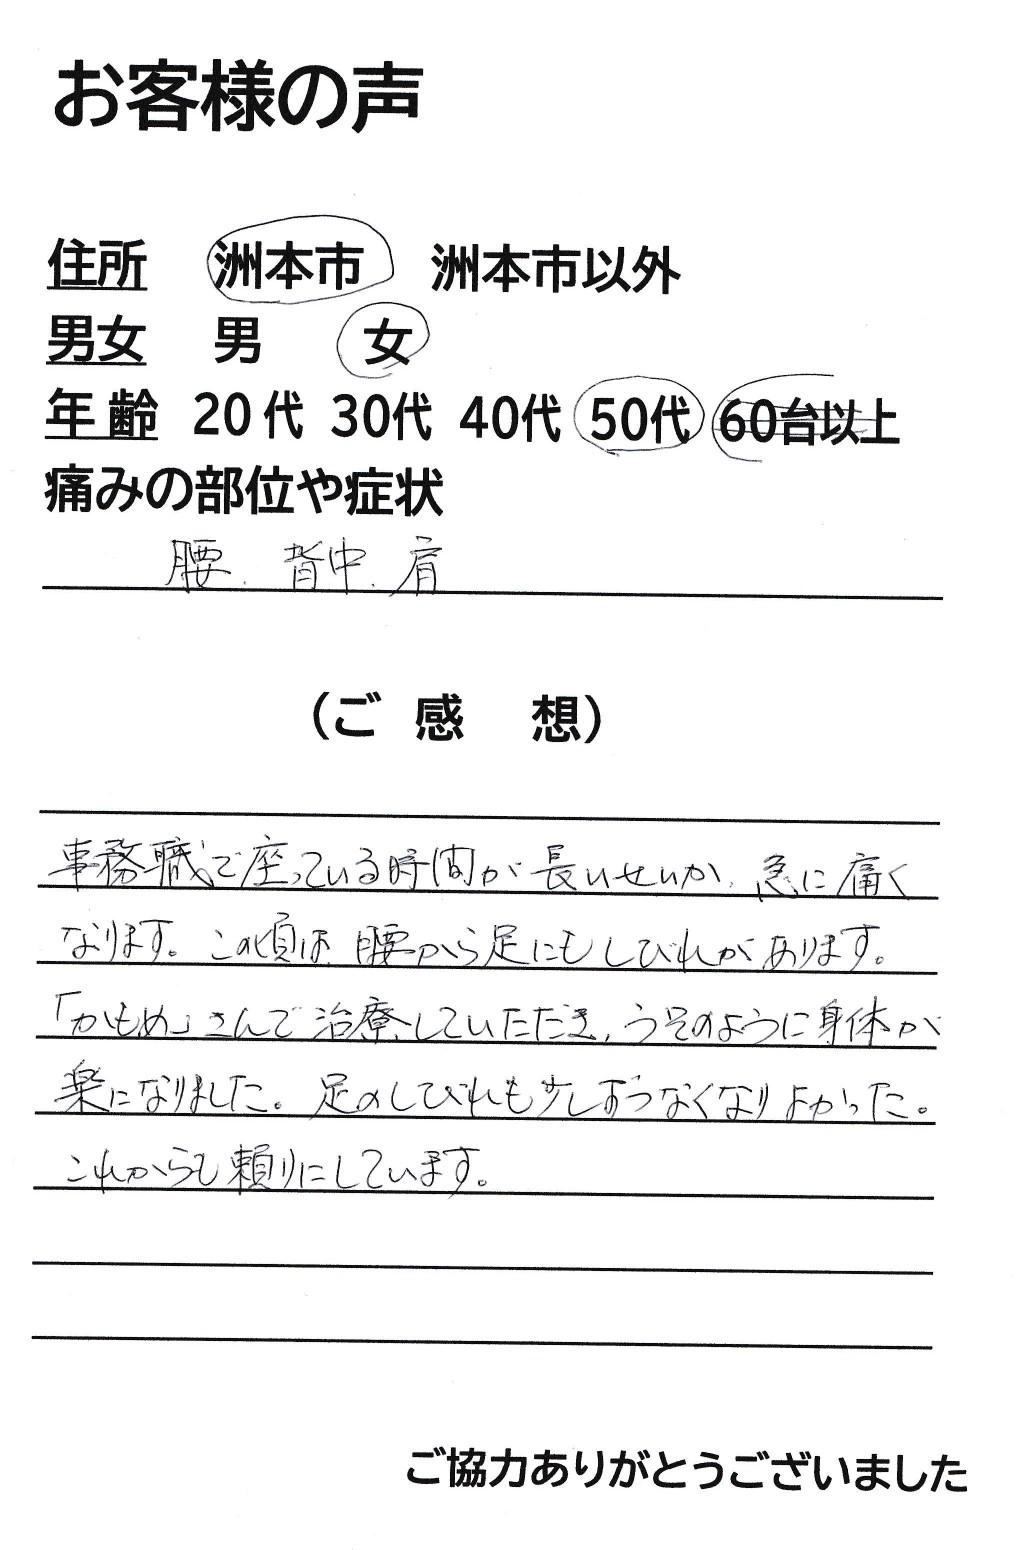 お客様の声
住所 洲本市 洲本市以外
男女 男 女
年齢 20代 30代 40代 50代 60台以上
痛みの部位や症状
腰、背中、肩
(ご感想)
事務職で座っている時間が長いせいか、急に痛く
なります。この頃は、腰から足にもしびれがあります。
「かもめ」さんで治療していただき、うそのように身体が
楽になりました。足のしびれも少しずつなくなりよかった。
これからも頼りにしています。
ご協力ありがとうございました